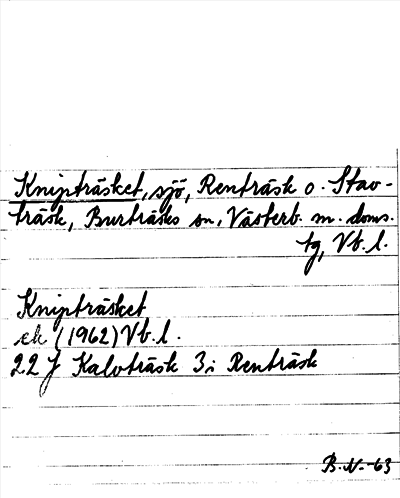 Knipträsket, sjö, Renträsk o. Stav-
träsk, Burträsks sn, Västerb. m. doms.
tg, Vb. l.
Knipträsket
ek (1962) Vb. l.
22 J Kalvträsk 3 i Renträsk
B. N. -63